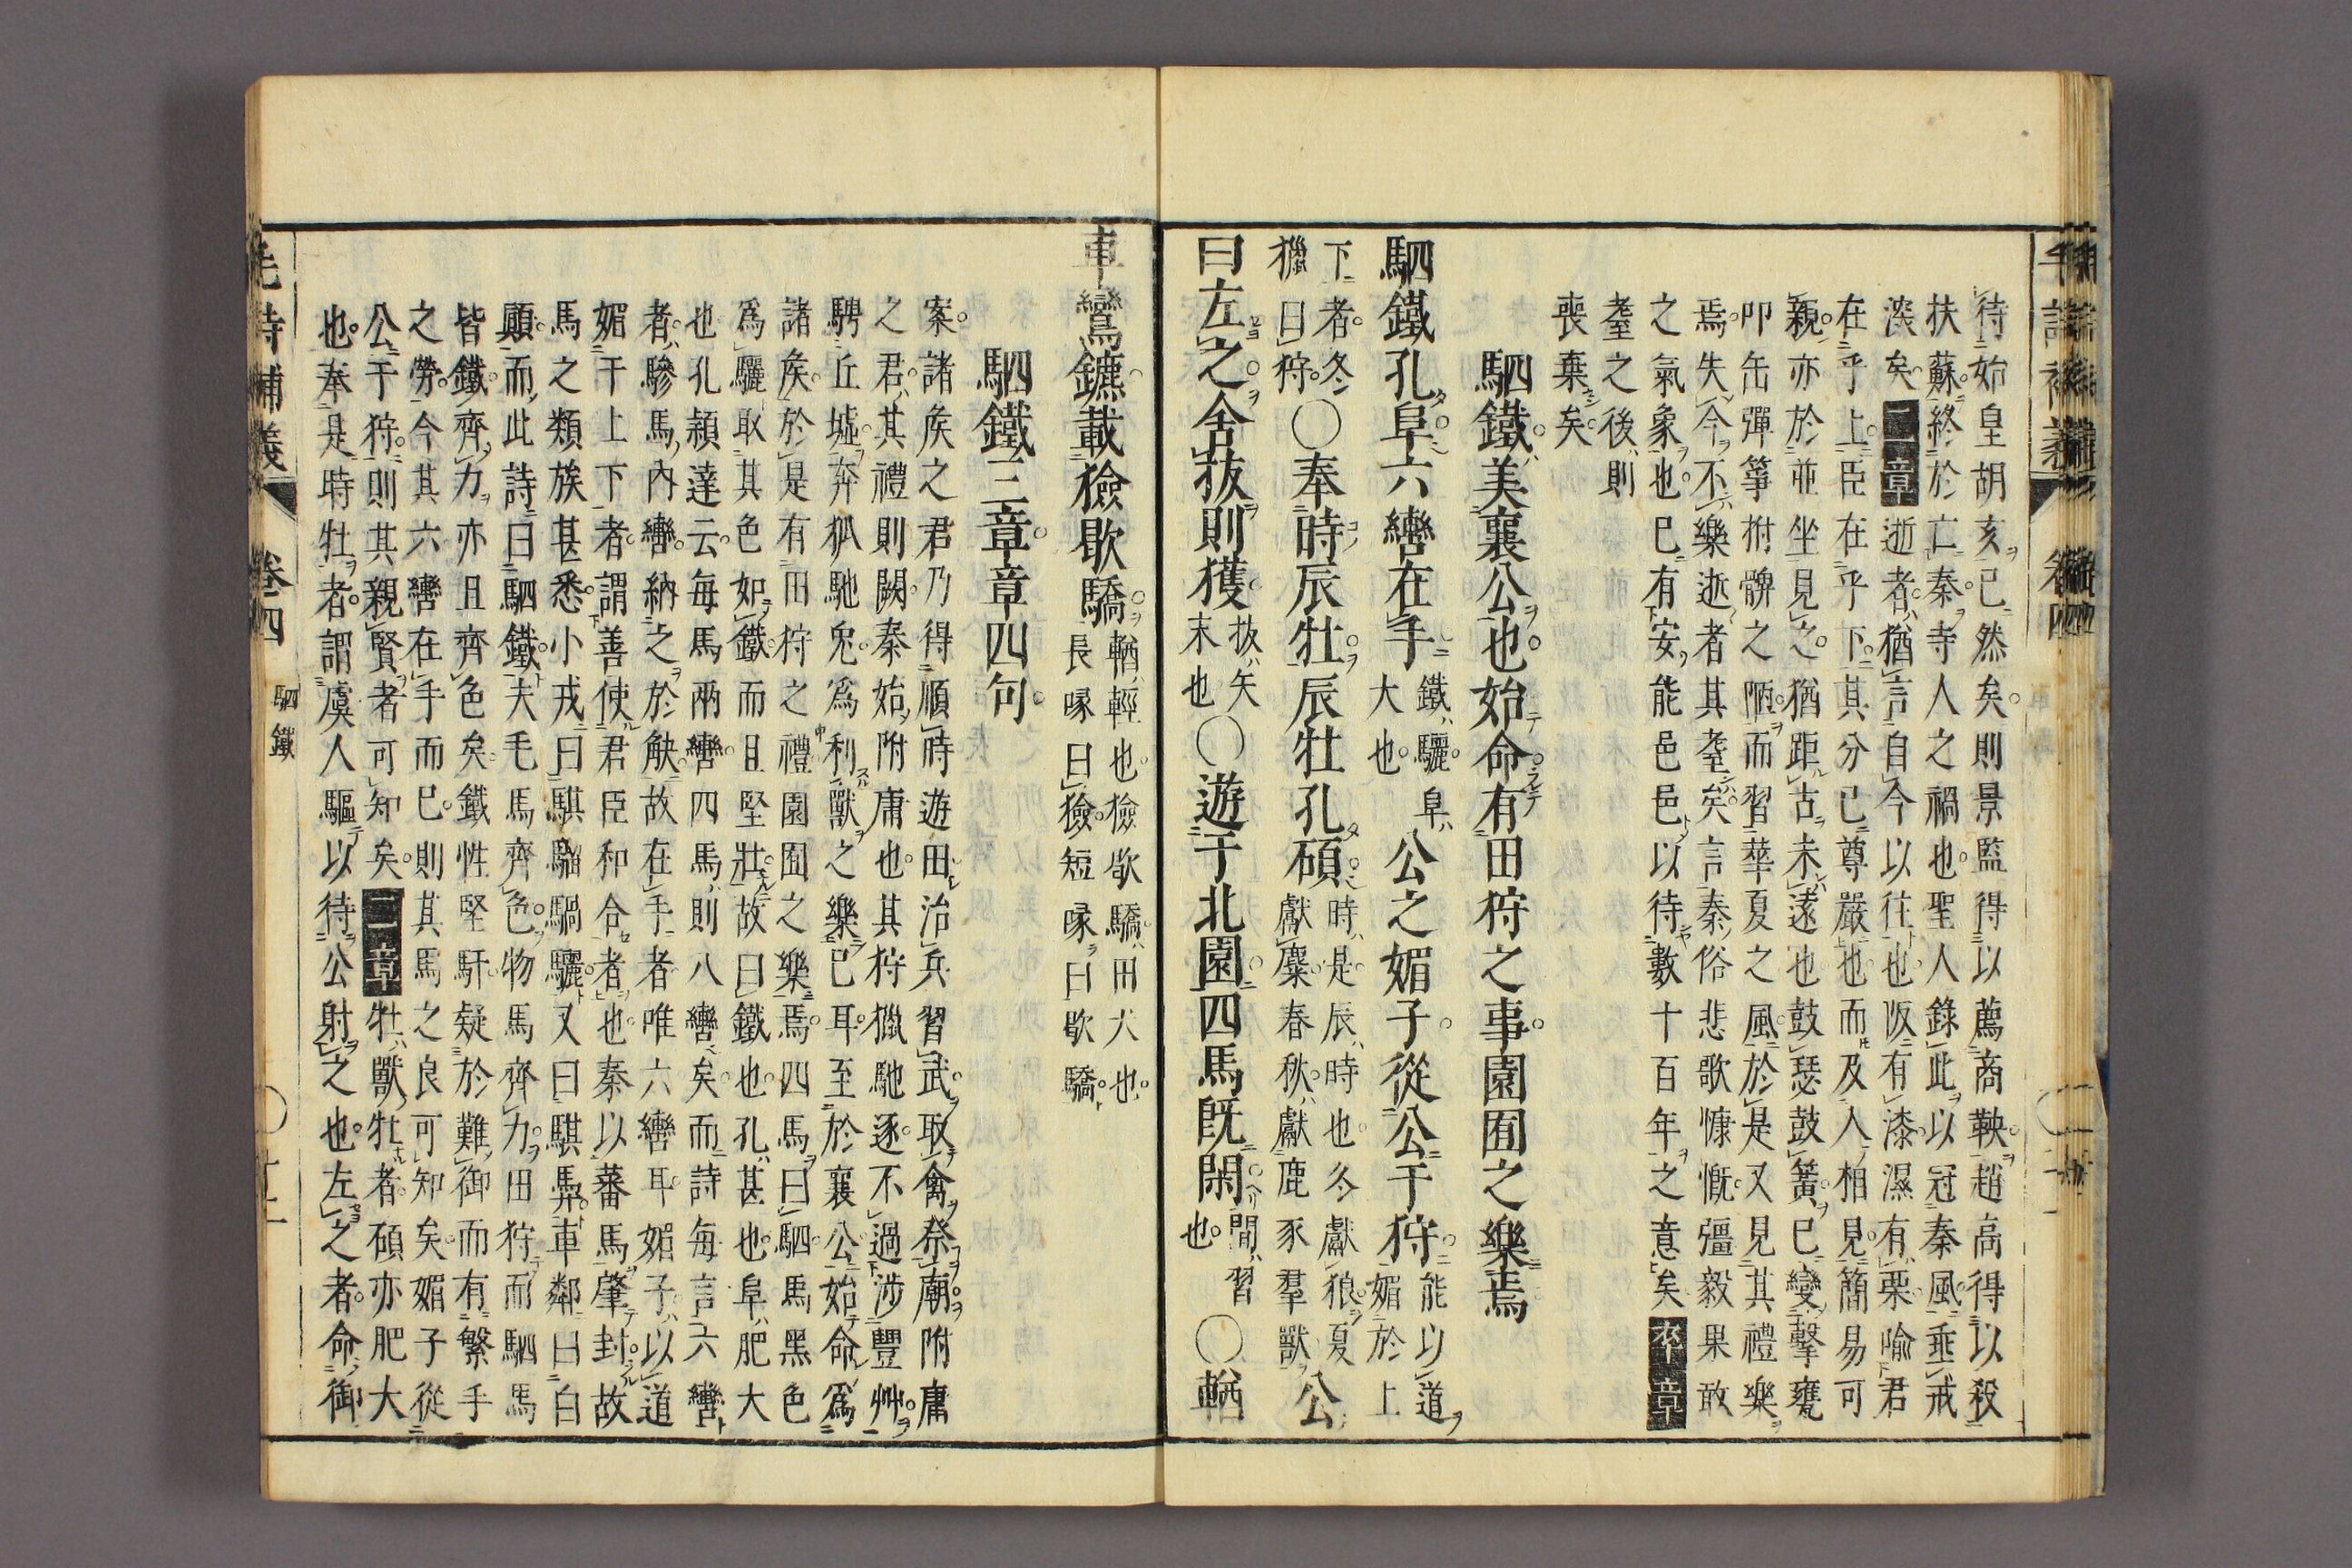 待始皇胡亥已然矣則景監得以薦商鞅趙高得以殺
扶蘇終於亡秦寺人之禍也聖人錄此以冠秦風垂戒
深矣二章逝者猶言自今以往也阪有漆濕有栗喻君
在乎上臣在乎下其分已尊嚴也而及人相見簡易可
親亦於並坐見之猶距古未遠也鼓瑟鼓簧已變擊甕
叩缶彈箏拊髀之陋而習華夏之風於是又見其禮樂
焉失今不樂逝者其耋矣言秦俗悲歌慷慨彊毅果敢
之氣象也已有安能邑邑以待數十百年之意矣卒章
耋之後則
喪棄矣
駟鐵美襄公也始命有田狩之事園囿之樂焉
駟鐵孔阜六轡在手鐵驪阜大也公之媚子從公于狩能以道媚於上
下者冬獵曰狩〇奉時辰牡辰牡孔碩時是辰時也冬獻狼夏獻麋春秋獻鹿豕羣獸公
曰左之舍拔則獲拔矢末也〇遊于北園四馬旣閑閒習也〇輶
車鸞鑣載獫歇驕輶輕也獫歇驕田犬也長喙曰獫短喙曰歇驕
駟鐵三章章四句
案諸侯之君乃得順時遊田治兵習武取禽祭廟附庸
之君其禮則闕秦始附庸也其狩獵馳逐不過涉豐艸
騁丘墟奔狐馳兔爲利獸之樂已耳至於襄公始命爲
諸侯於是有田狩之禮園囿之樂焉四馬曰駟馬黑色
爲驪取其色如鐵而且堅壯故曰鐵也孔甚也阜肥大
也孔穎達云每馬兩轡四馬則八轡矣而詩每言六轡
者驂馬內轡納之於觖故在手者唯六轡耳媚子以道
媚于上下者謂善使君臣和合者也秦以蕃馬肇封故
馬之類族甚悉小戎曰騏騮騧驪又曰騏馵車鄰曰白
顚而此詩曰駟鐵夫毛馬齊色物馬齊力田狩而駟馬
皆鐵齊力亦且齊色矣鐵性堅馯疑於難御而有繁手
之勞今其六轡在手而已則其馬之良可知矣媚子從
公于狩則其親賢者可知矣二章牡獸牡者碩亦肥大
也奉是時牡者謂虞人驅以待公射之也左之者命御
毛詩補義 卷四 駟鐵